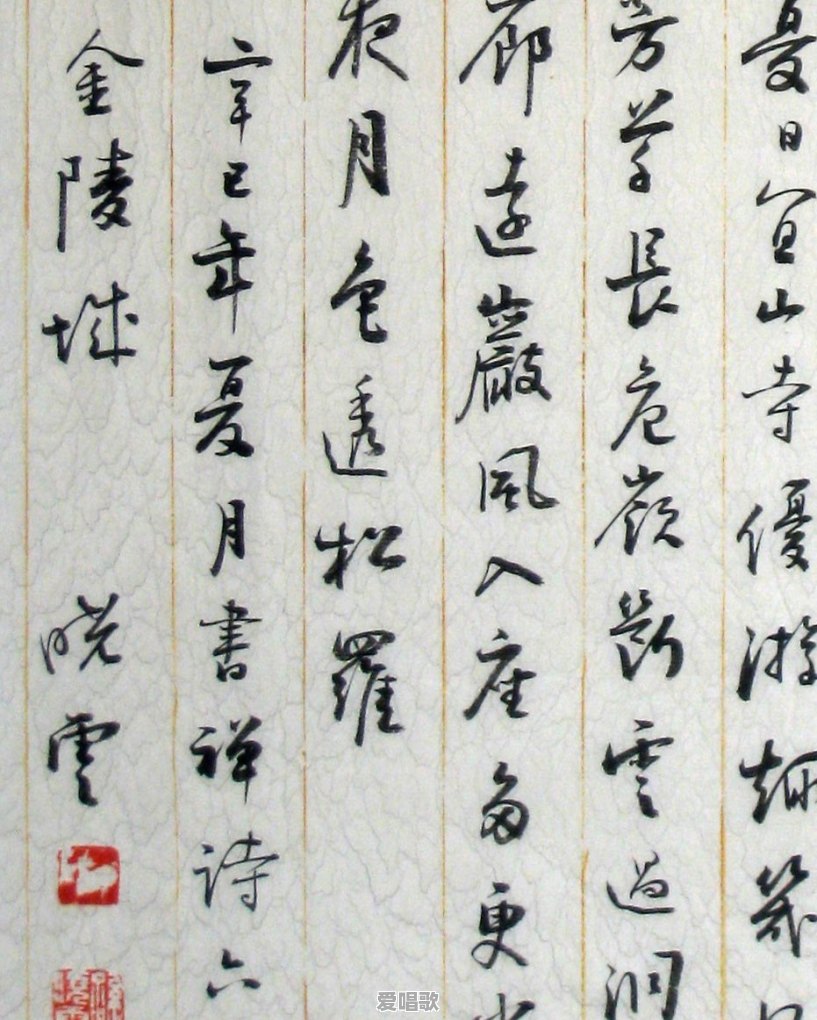 夏日宜山寺優游
芳草長危嶺斷雲過洞
廊遠巖風入座多更
夜月色透松羅
辛巳年夏月書禅詩六
金陵城 晓雲
爱唱歌